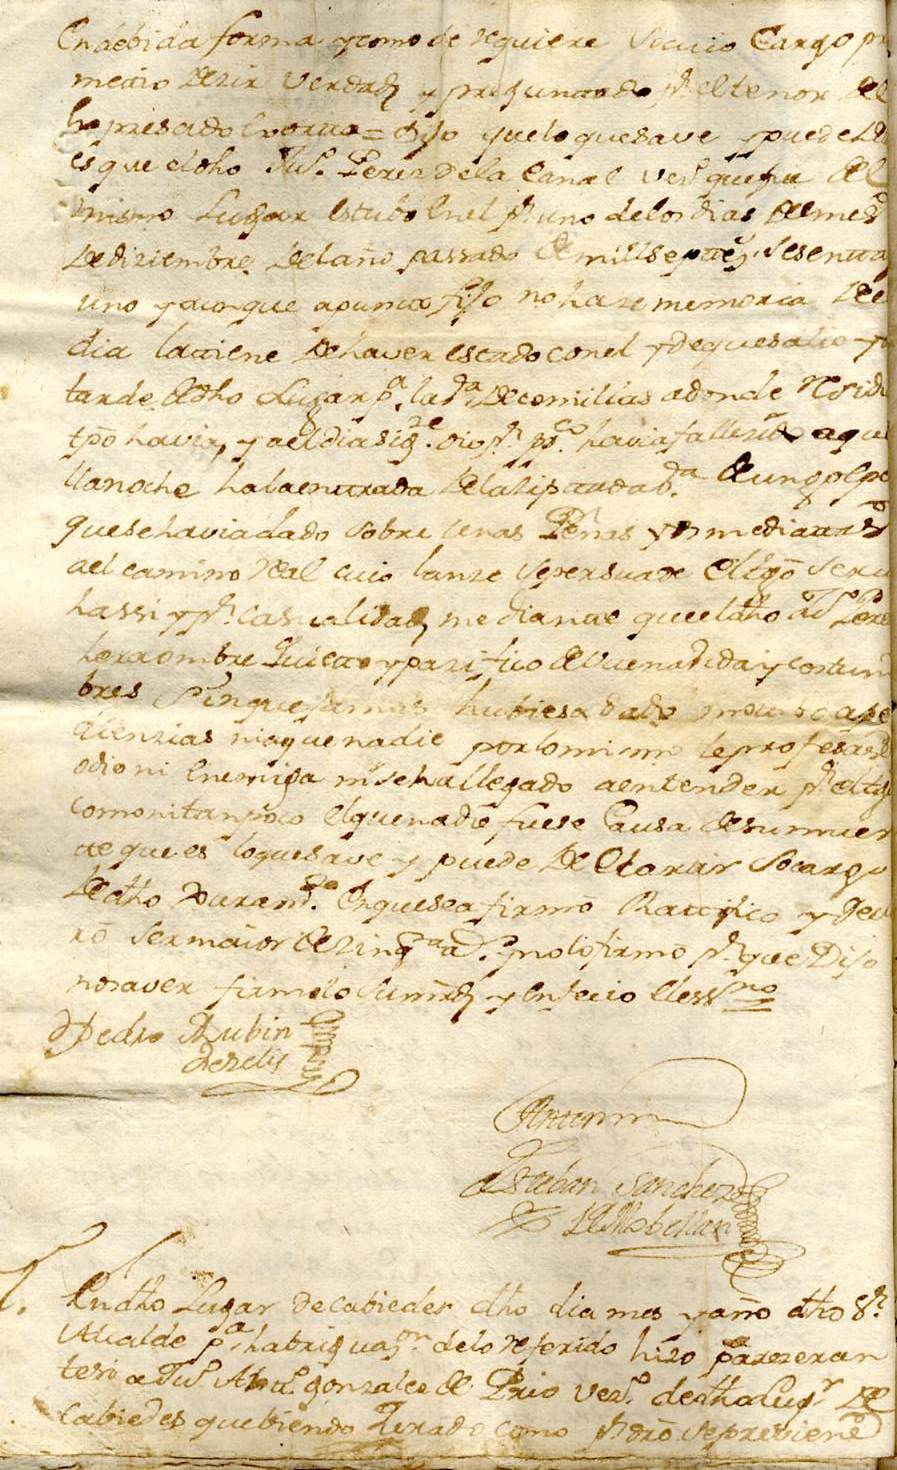 En debida forma y como se requiere Socuio Cargo pro
metio dezir Verdad y preguntado pr. el tenor del
hspresado Dijo que lo que save y puede De
es que el dho Juo. Perez de la Canal vezo. que fue del
mismo Lugar estubo en el pr. uno de los dias del mes
de diziembre del año passado de mill septezs. sesenta y
uno y aunque apunto fijo no haze memoria del
dia la tiene de haver estado con el y de que salio
tarde del dho Lugar pa. la va. de comillas adonde residi
tpo havia, y a el dia sigte. oio pr. ppco. havia fallezido aque
lla noche ha la entrada de la zitada va. de un golpe
que se havia dado sobre unas Peñas ynmediatas
a el camino real cuio lanze se persuade el tgo. seria
hassi y pr. casualidad, mediante que el dho Juo. Perez
hera ombre quieto y pazifico de vuena vida y costum
bres sin que jamas hubiese dado motibo a pe
denzias ni a que nadie por lo mismo le profesase
odio ni Enemiga ni se ha llegado a entender pr. el tgo
como ni tanpoco el que nadie fuese Causa de su muer
te que es lo que save y puede DeClarar So cargo
de dho Juramto. En que se afirmo Ratifico y decla
ro ser maior de zinqta. as. y no lo firmo pr. que Dijo
no saver firmolo su mrd. y En feeio El essno.
Dn Pedro Rubin
de zelis
Antemi
Esteban Sanchez
de Mobellan
T. En dho Lugar de cabiedes dho dia mes y año dho Sr.
Alcalde pa. la abriguazon. de lo referido hizo parezer an
te si a Juo. Anto. gonzalez de Prio vezo. de dho Lugr. de
Cabiedes que biendo Jurado como pr. dro. se previene